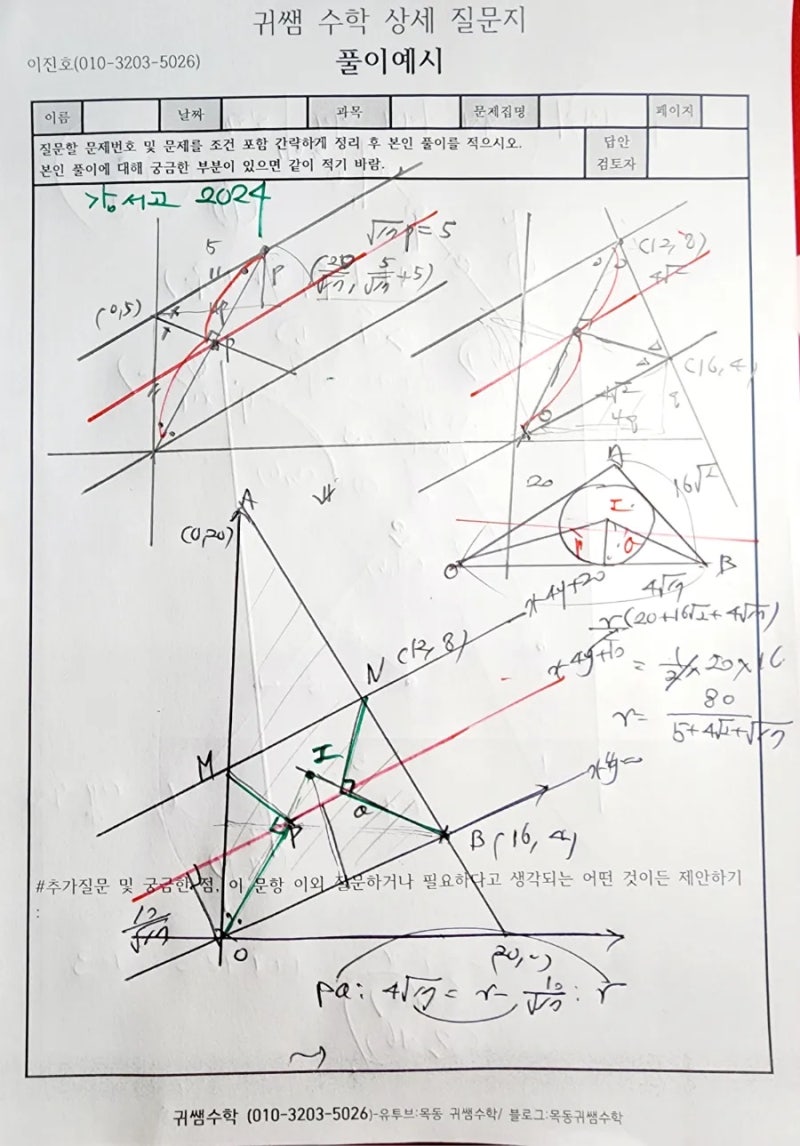 귀쌤 수학 상세 질문지
이진호(010-3203-5026)
풀이예시
이름 날짜 과목 문제집명 페이지
질문할 문제번호 및 문제를 조건 포함 간략하게 정리 후 본인 풀이를 적으시오.
본인 풀이에 대해 궁금한 부분이 있으면 같이 적기 바람.
답안
검토자
강서고 2024
√17p = 5
5
(20/√17, 5/√17+5)
(0,5)
P
(12, 8)
4√2
(16, 4)
4√2
A
20
16√2
I
r
O
B
4√17
A
(0,20)
N (12, 8)
x-4y+20
r(20+16√2+4√17)
x-4y+10
= 1/2 × 20 × 16
r = 80 / 5+4√2+√17
M
I
P
Q
B (16, 4)
#추가질문 및 궁금한 점, 이 문항 이외 질문하거나 필요하다고 생각되는 어떤 것이든 제안하기
:
10/√17
O
PQ : 4√17 = r - 10/√17 : r
귀쌤수학 (010-3203-5026)-유투브:목동 귀쌤수학/ 블로그:목동귀쌤수학